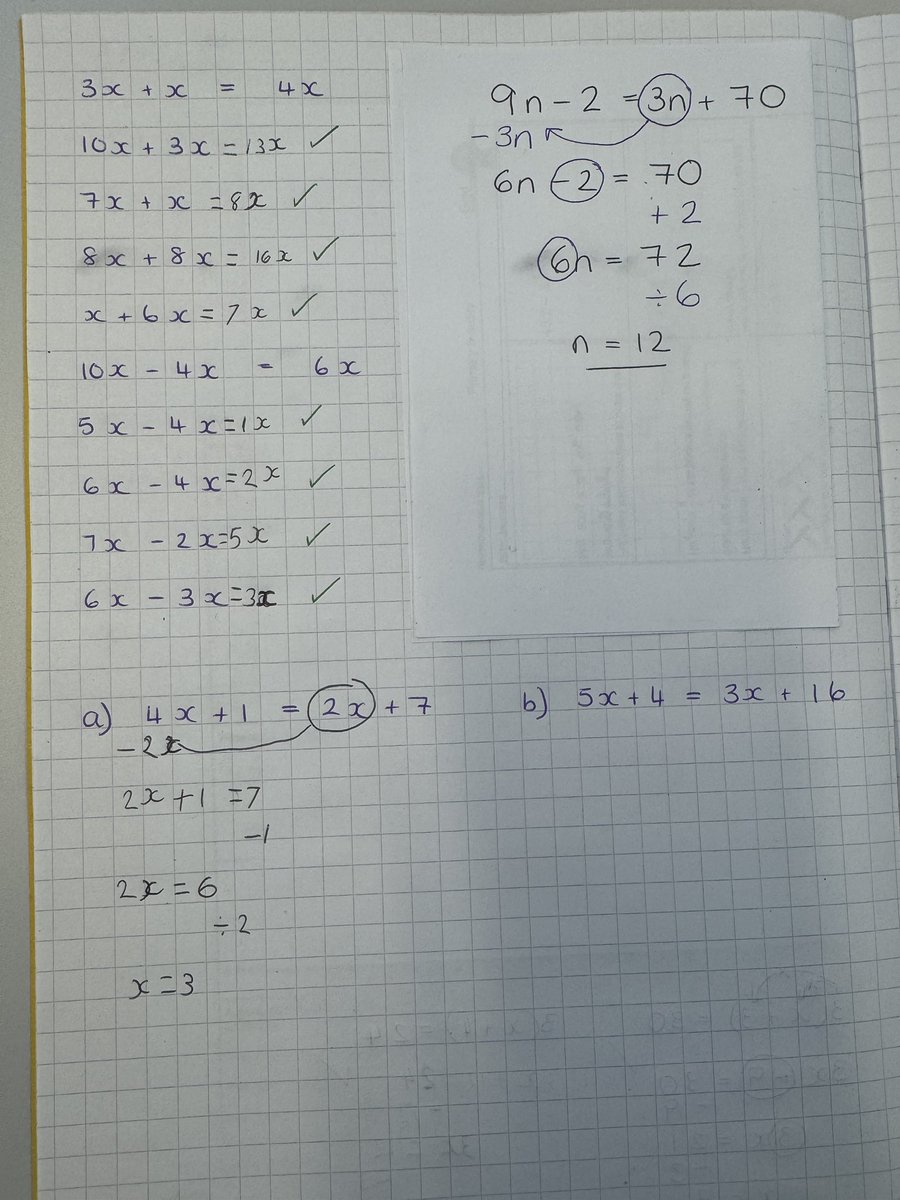 3x + x = 4x
10x + 3x = 13x ✓
7x + x = 8x ✓
8x + 8x = 16x ✓
x + 6x = 7x ✓
10x - 4x = 6x
5x - 4x = 1x ✓
6x - 4x = 2x ✓
7x - 2x = 5x ✓
6x - 3x = 3x ✓
9n - 2 = 3n + 70
- 3n
6n - 2 = 70
+ 2
6n = 72
÷ 6
n = 12
a) 4x + 1 = 2x + 7
- 2x
2x + 1 = 7
- 1
2x = 6
÷ 2
x = 3
b) 5x + 4 = 3x + 16